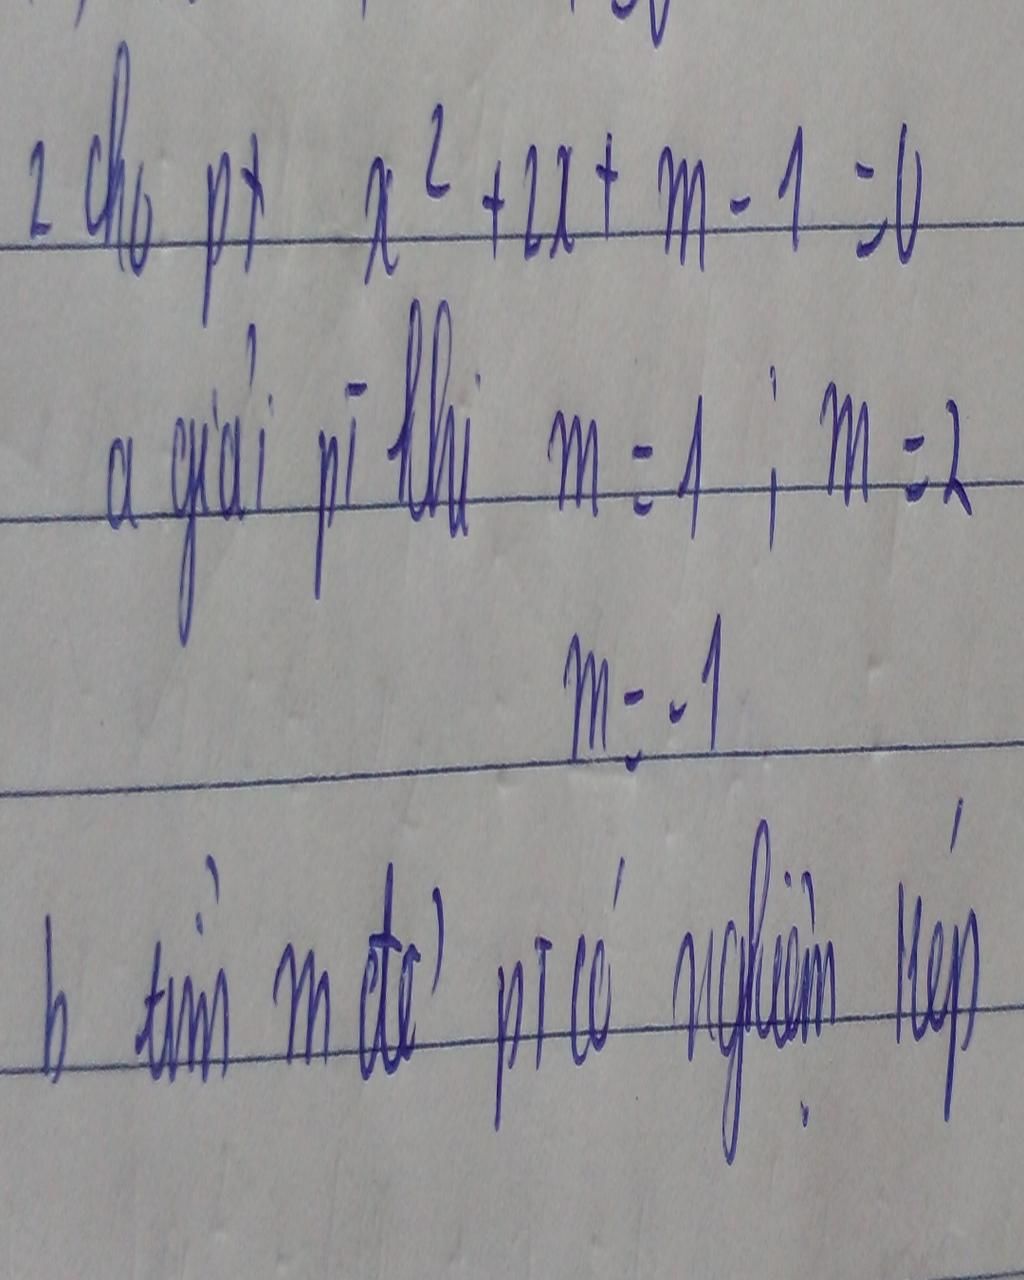 2 cho pt x² + 2x + m - 1 = 0
a giải pT khi m = 1 ; m = 2
m = -1
b tìm m để pT có nghiệm kép